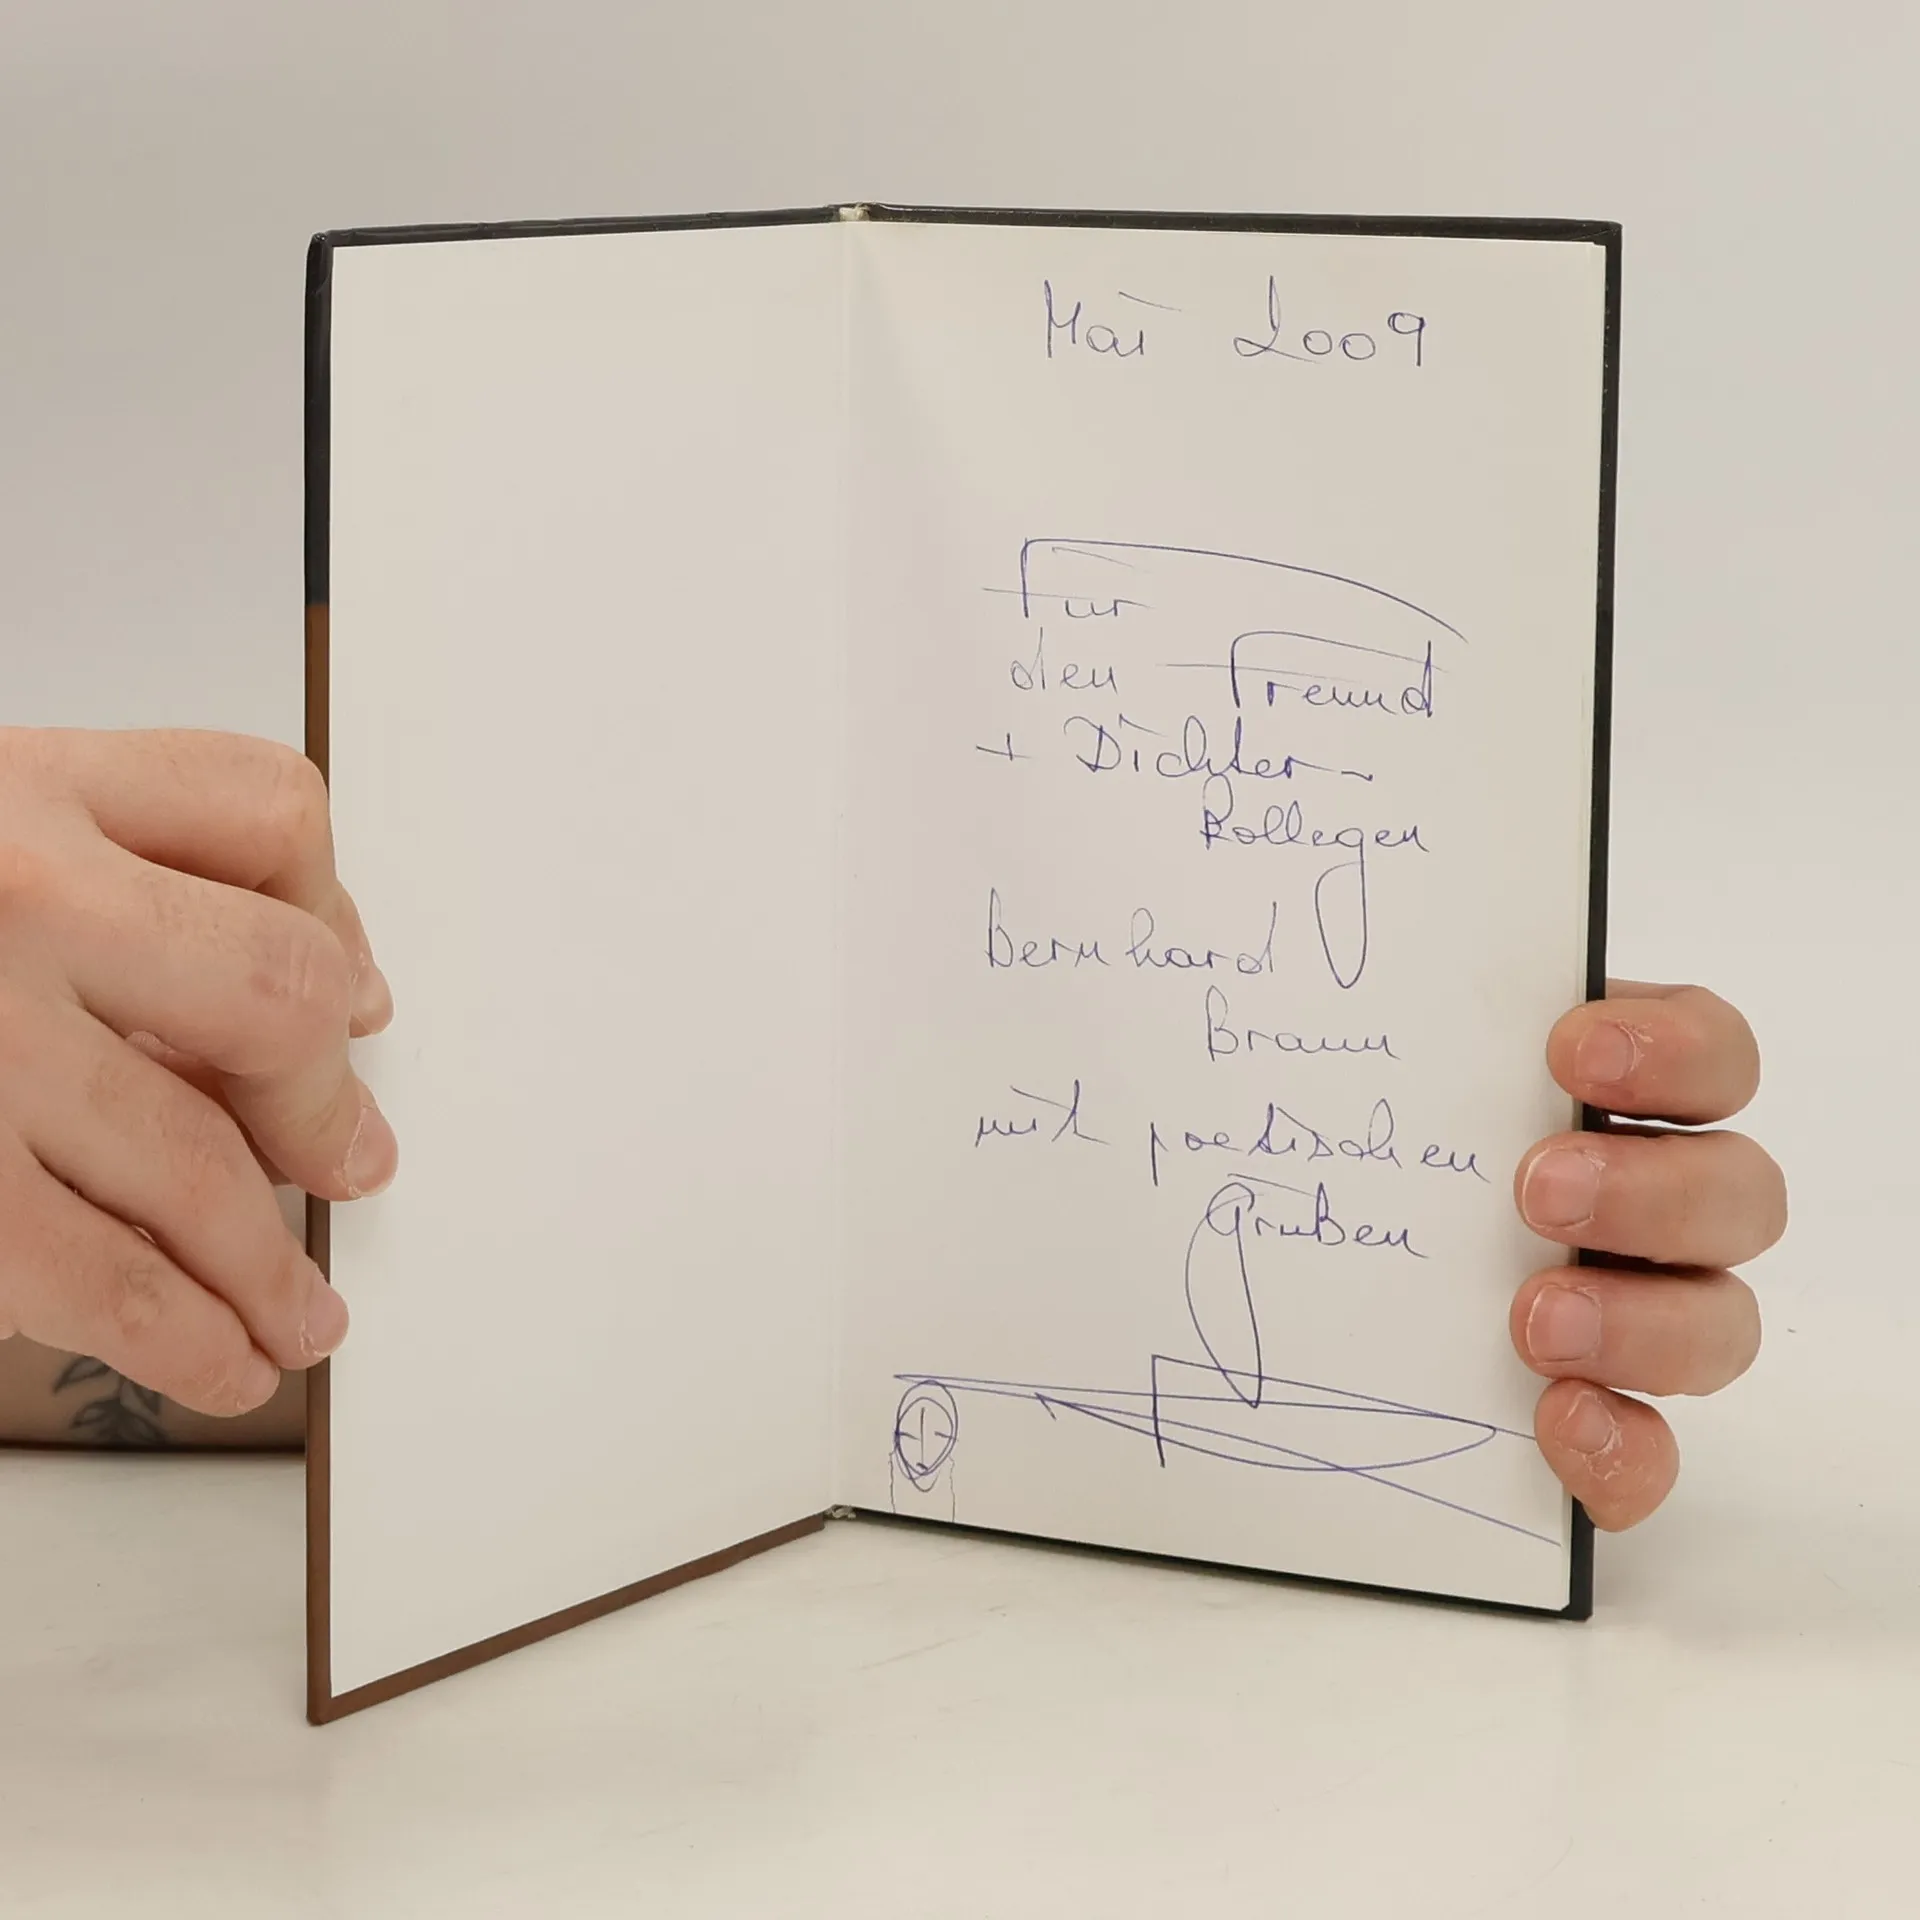 Mai 2009
Für
den Freund
+ Dichter-
kollegen
Bernhard
Braun
mit poetischen
Grüßen